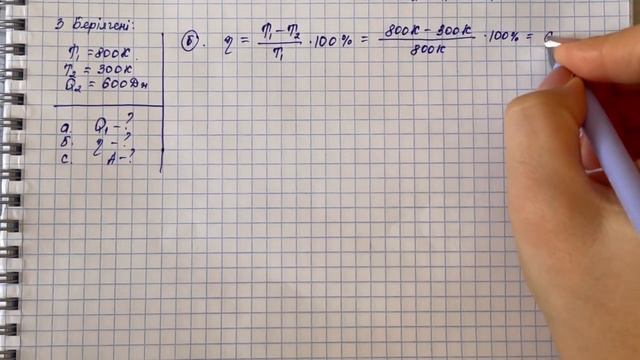 3 Берілгені:
T₁ = 800К
T₂ = 300К
Q₂ = 600Дж
а. Q₁ - ?
Б. η - ?
с. A - ?
Б). η = (T₁ - T₂)/T₁ · 100% = (800К - 300К)/800К · 100% =